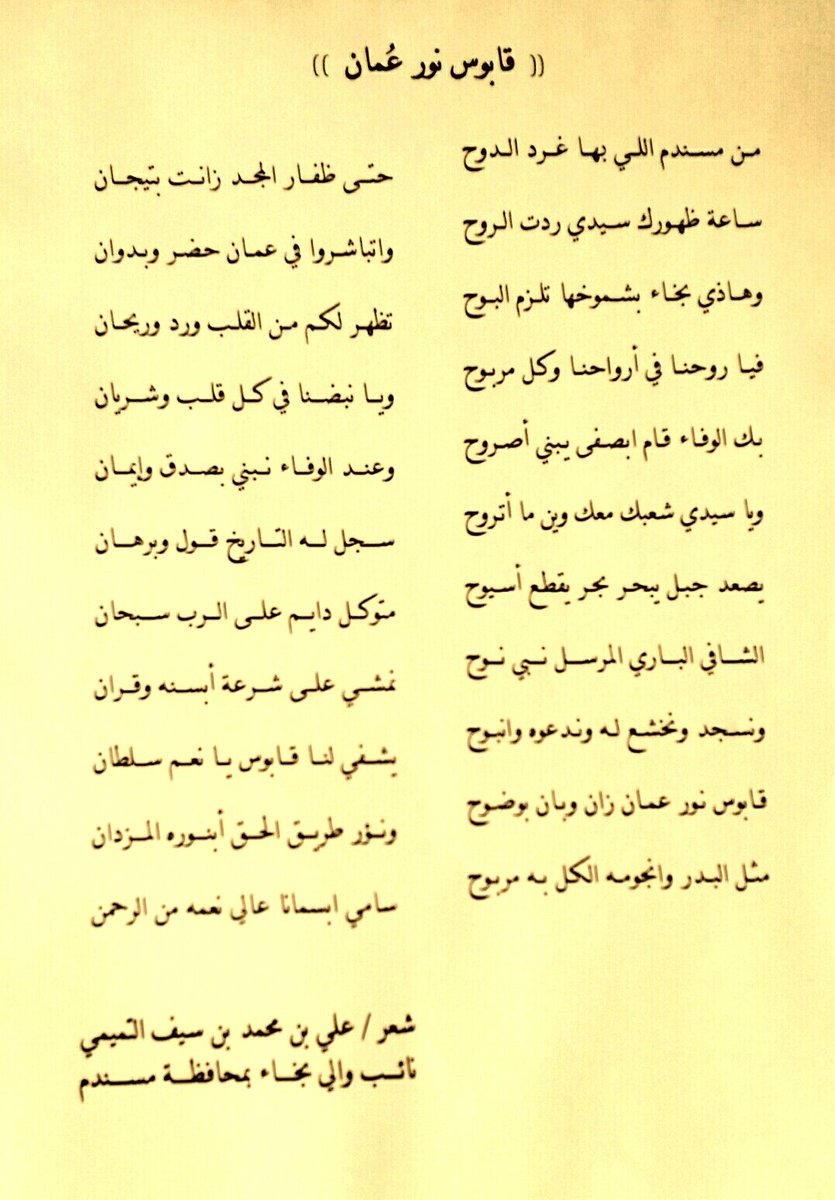 (( قابوس نور عُمان ))
من مسندم اللي بها غرد الدوح
حتى ظفار المجد زانت بتيجان
ساعة ظهورك سيدي ردت الروح
واتباشروا في عمان حضر وبدوان
وهاذي بخاء بشموخها تلزم البوح
تظهر لكم من القلب ورد وريحان
فيا روحنا في أرواحنا وكل مربوح
ويا نبضنا في كل قلب وشريان
بك الوفاء قام ابصفى يبني أصروح
وعند الوفاء نبني بصدق وإيمان
ويا سيدي شعبك معك وين ما أتروح
سجل له التاريخ قول وبرهان
يصعد جبل يبحر بحر يقطع أسيوح
متوكل دايم على الرب سبحان
الشافي الباري المرسل نبي نوح
نمشي على شرعة أبسنه وقران
ونسجد ونخشع له وندعوه وانبوح
يشفي لنا قابوس يا نعم سلطان
قابوس نور عمان زان وبان بوضوح
ونؤر طريق الحق أبنوره المزدان
مثل البدر وانجومه الكل به مربوح
سامي ابسمانا عالي نعمه من الرحمن
شعر / علي بن محمد بن سيف التميمي
نائب والي بخاء بمحافظة مسندم